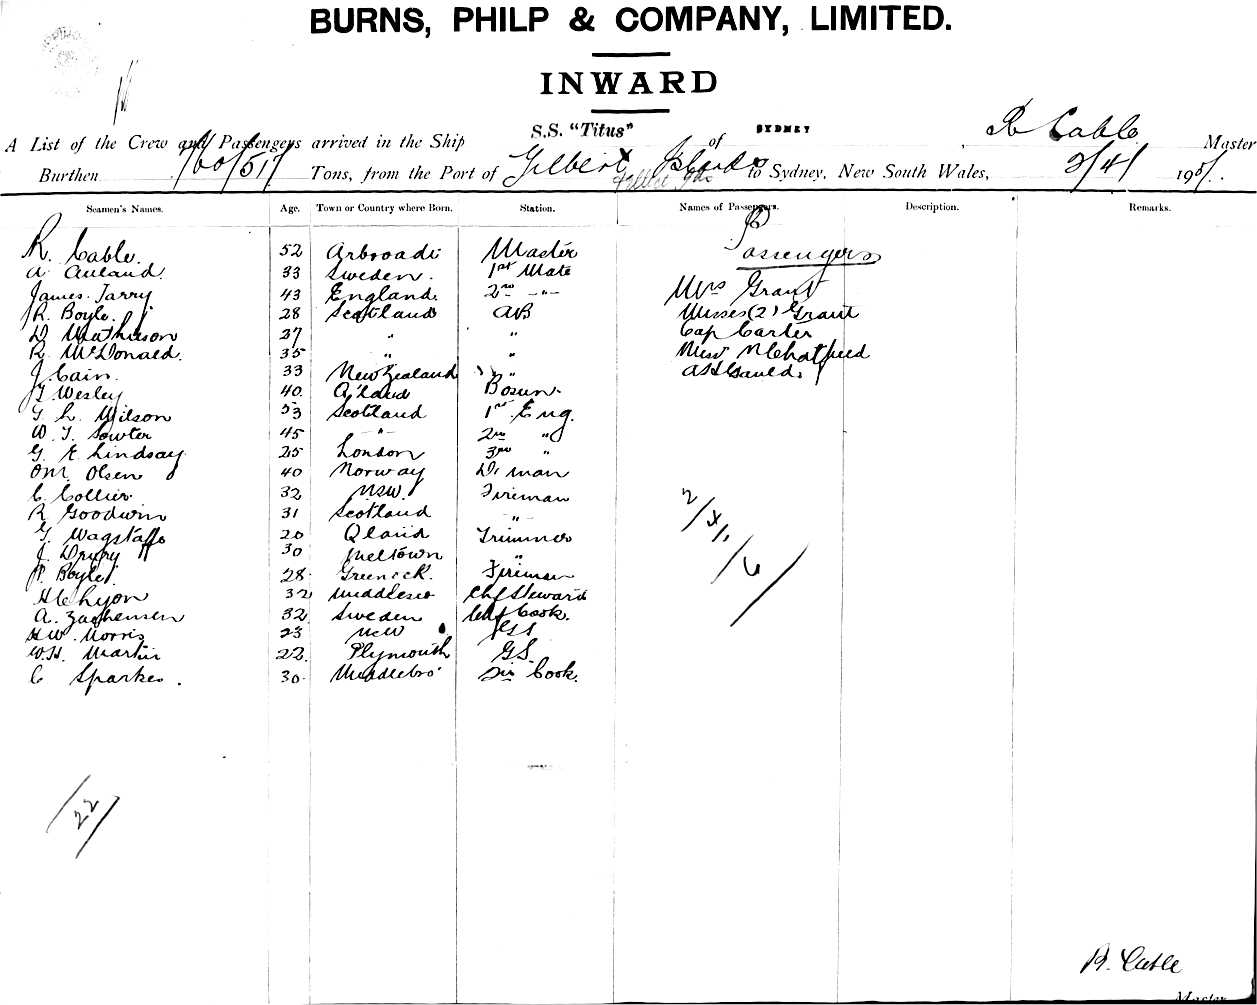 BURNS, PHILP & COMPANY, LIMITED.
INWARD
A List of the Crew and Passengers arrived in the Ship S.S. "Titus" of SYDNEY, R Cable Master
Burthen 760/517 Tons, from the Port of Gilbert Islands to Sydney, New South Wales, 2/4/ 190
Seamen's Names. Age. Town or Country where Born. Station. Names of Passengers. Description. Remarks.
R. Cable. 52 Arbroadi Master Passengers
A Auland. 33 Sweden. 1st Mate
James Tarry 43 England. 2nd -"- Mrs Grant
R. Boyle. 28 Scotland AB Misses (2) Grant
D Mathieson 27 " " Cap Carter
R. McDonald. 35 " " Miss
J Cain. 33 New Zealand "
J Wesley 40 Q'land Bosun.
G. L. Wilson 53 Scotland 1st Eng.
W. J. Sowter 45 -"- 2nd "
G. E. Lindsay 25 London 3rd "
OM. Olsen 40 Norway D. man
C. Collier 32 NSW. Fireman
R Goodwin 31 Scotland "
G. Wagstaffe 20 Qland Trimmer
J. Drury 30 "
P. Boyle. 28 Greenock. Fireman
H C Lyon 32 Middlesex Chf Steward
A. Zachensen 32 Sweden Chf Cook.
H W. Morris 23 NSW GS
W.H. Martin 22 Plymouth GS.
C Sparkes. 30 Middlebro' Cook.
2/4/
/6/
/22/
R. Cable
Master